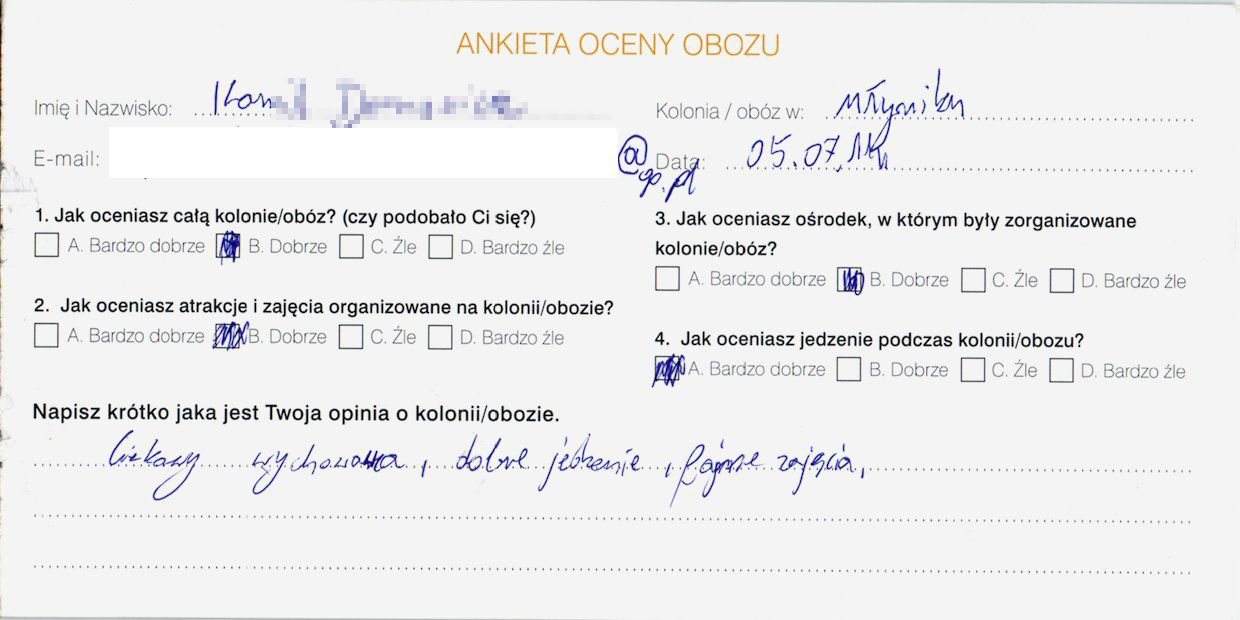 ANKIETA OCENY OBOZU
Imię i Nazwisko:
Kolonia / obóz w: Młyniku
E-mail: @go.pl
Data: 05.07.14r
1. Jak oceniasz całą kolonie/obóz? (czy podobało Ci się?)
A. Bardzo dobrze B. Dobrze C. Źle D. Bardzo źle
2. Jak oceniasz atrakcje i zajęcia organizowane na kolonii/obozie?
A. Bardzo dobrze B. Dobrze C. Źle D. Bardzo źle
3. Jak oceniasz ośrodek, w którym były zorganizowane
kolonie/obóz?
A. Bardzo dobrze B. Dobrze C. Źle D. Bardzo źle
4. Jak oceniasz jedzenie podczas kolonii/obozu?
A. Bardzo dobrze B. Dobrze C. Źle D. Bardzo źle
Napisz krótko jaka jest Twoja opinia o kolonii/obozie.
Ciekawy , dobre jedzenie , fajne zajęcia,